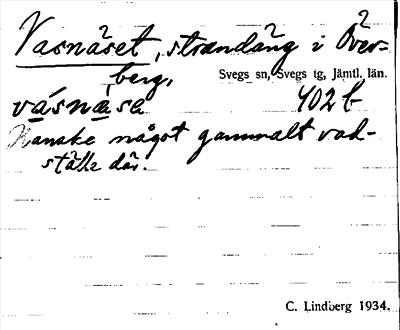 Vasnäset, strandäng i Över-
berg,
Svegs sn, Svegs tg, Jämtl. län.
402 b
Kanske något gammalt vad-
ställe där.
C. Lindberg 1934.